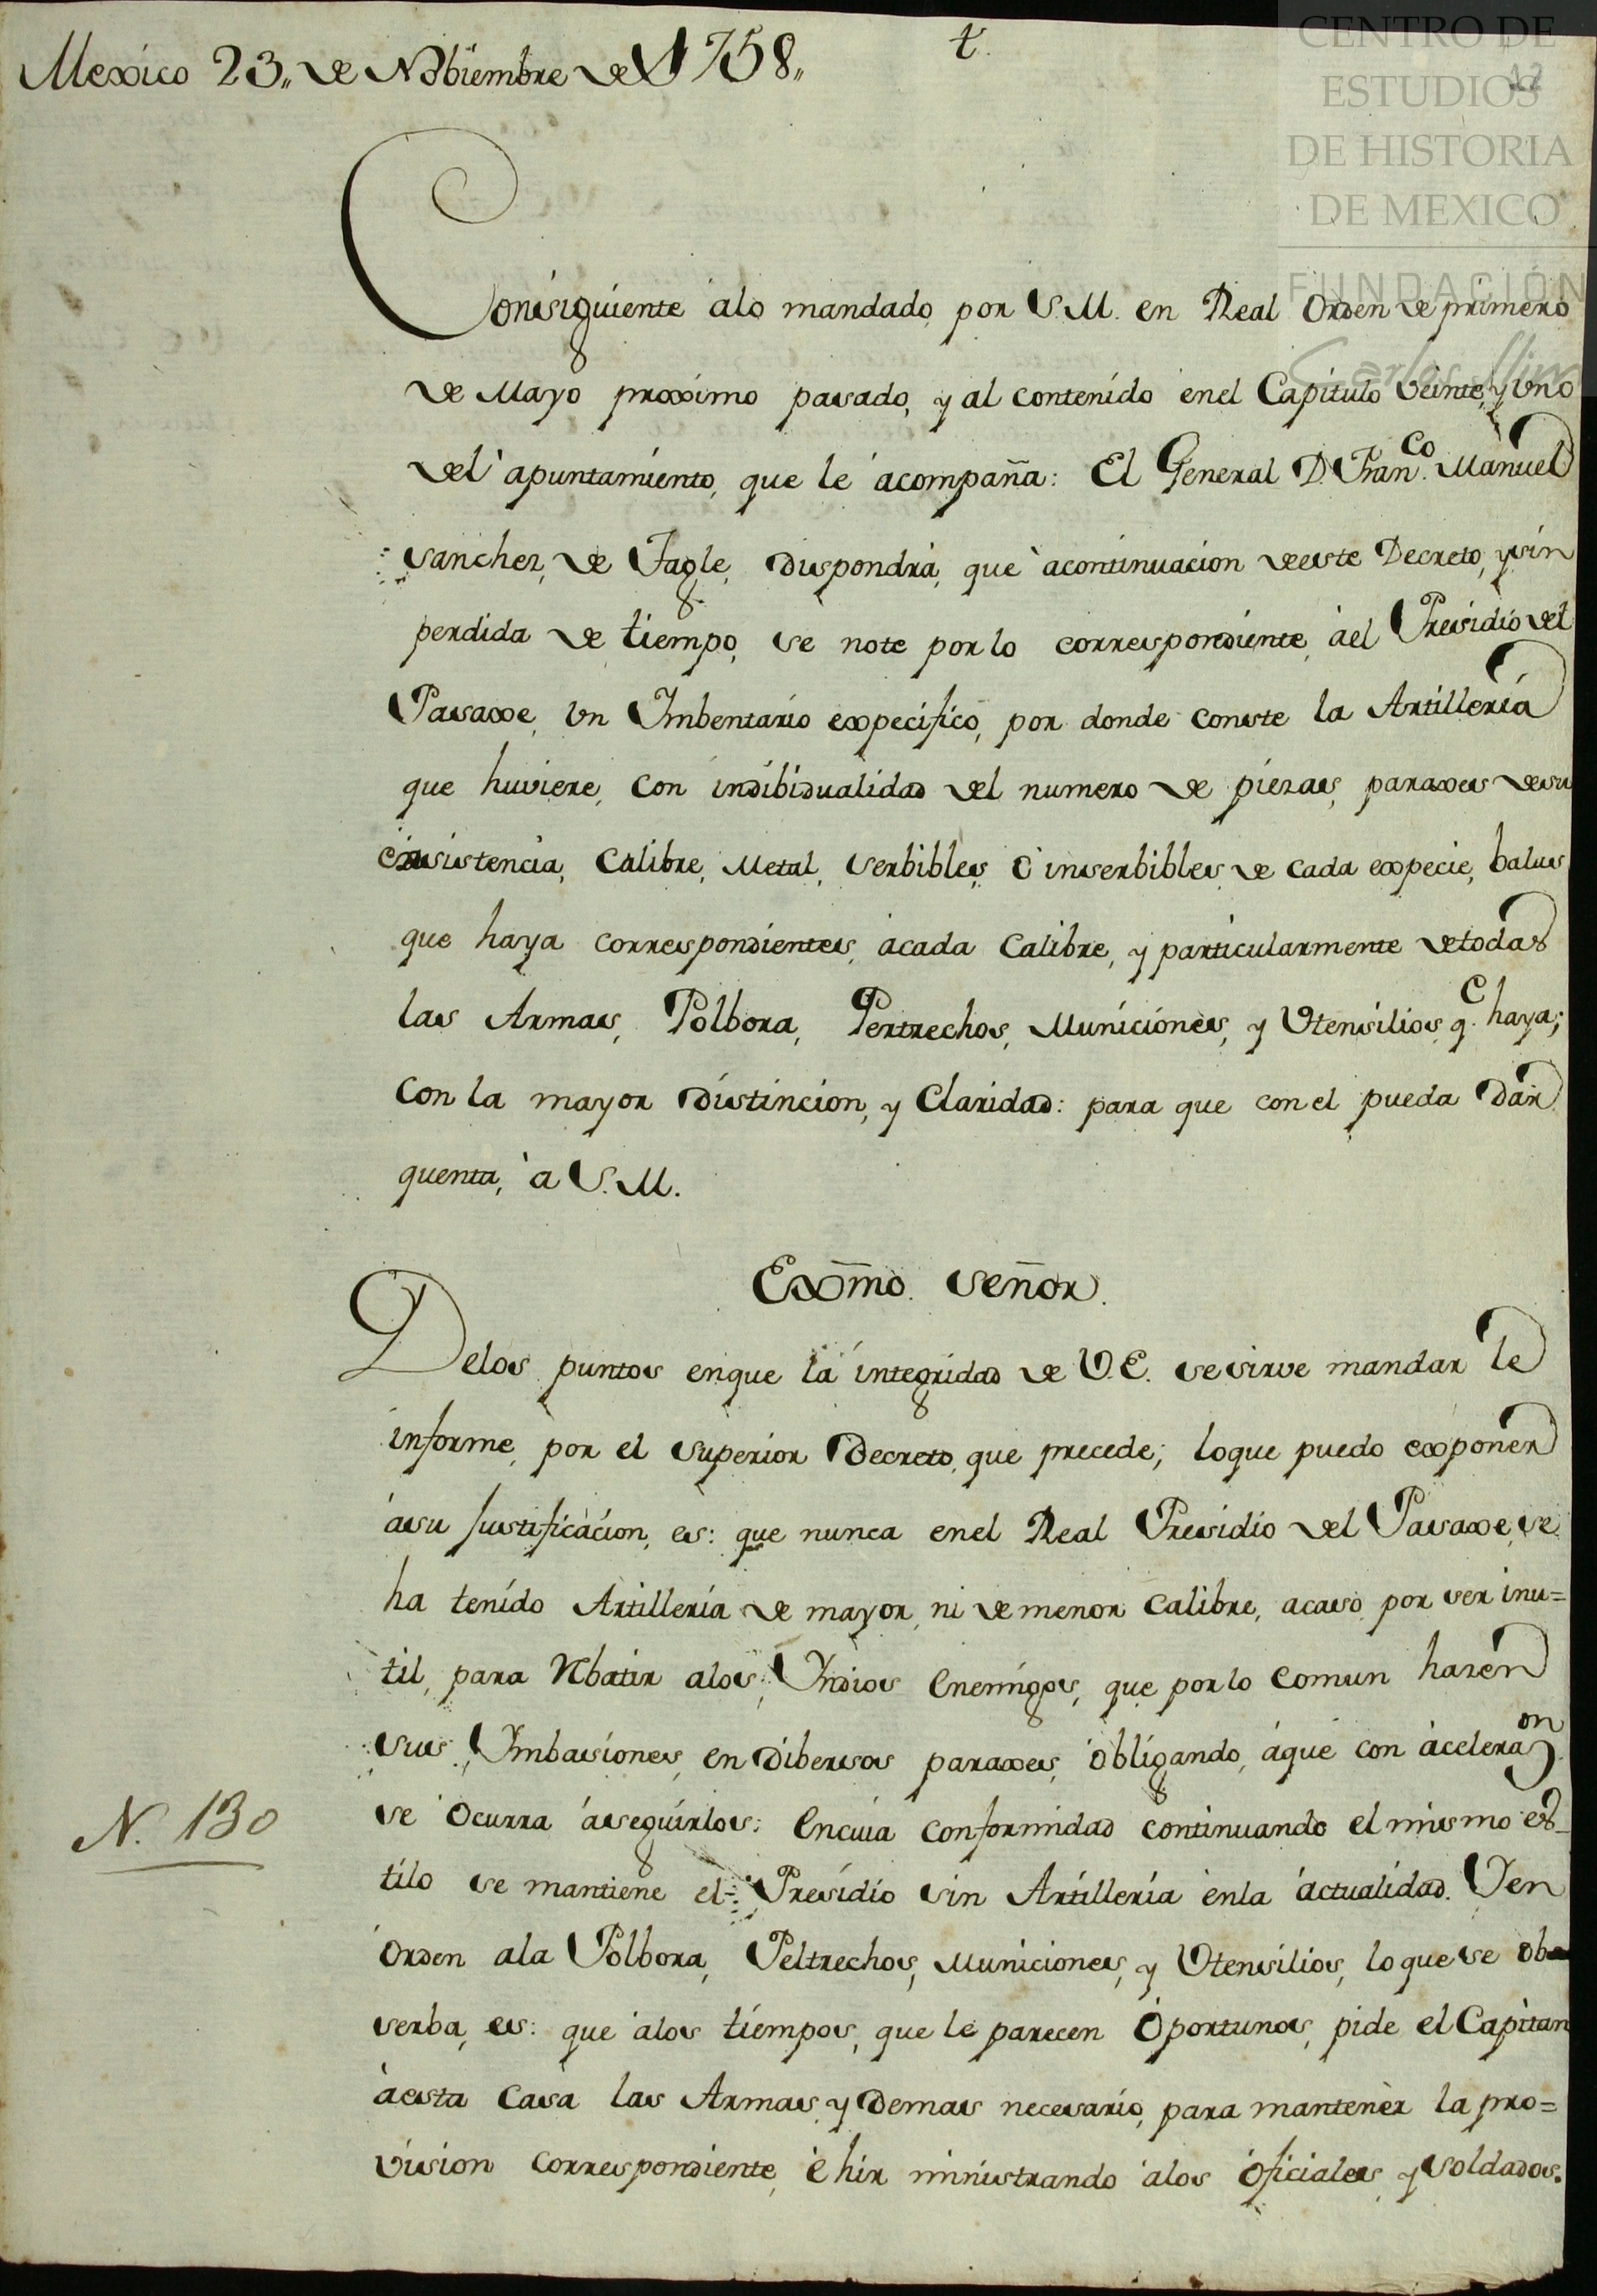 Mexico 23,, de Nobiembre de 1758,,
t.
12
CENTRO DE
ESTUDIOS
DE HISTORIA
DE MEXICO
FUNDACIÓN
Carlos Slim
Consiguiente alo mandado, por S.M. en Real Orden de primero
de Mayo proximo pasado, y al contenido enel Capitulo veinte, y vno
del apuntamiento, que le acompaña: El General D. Fran.co Manuel
Sanchez, de Tagle, dispondrà, que acontinuacion deeste Decreto, y sin
perdida de tiempo, se note por lo correspondiente, àel Presidio del
Pasaxe, vn Imbentario expecifico, por donde conste la Artilleria
que huviere, con indibidualidad del numero de piezas, paraxes desu
existencia, Calibre, Metal, serbibles, ò inserbibles de cada expecie, balas
que haya correspondientes, acada Calibre, y particularmente detodas
las Armas, Polbora, Pertrechos, Municiones, y Vtensilios, q.e haya;
con la mayor distincion, y Claridad: para que con el pueda dàr
quenta, à S.M.
Exm̃o. Señor.
Delos puntos enque la integridad de V.E. se sirve mandar le
informe, por el superior Decreto, que precede; loque puedo exponer
àsu Justificacion, es: que nunca enel Real Presidio del Pasaxe, se
ha tenido Artilleria de mayor, ni de menor Calibre, acaso por ser inu=
til, para Rbatir alos Yndios Enemigos, que por lo comun hazen
sus Ymbasiones, en dibersos paraxes, obligando, àque con aceleraz.on
se ocurra àseguirlos: Encuia conformidad continuando el mismo es-
tilo se mantiene el Presidio sin Artilleria enla actualidad. Y en
orden ala Polbora, Peltrechos, Municiones, y Vtensilios, lo que se ob
serba, es: que alos tiempos, que le parecen Oportunos, pide el Capitan
àesta Casa las Armas, y demas necesario, para mantener la pro=
vision correspondiente, è hir ministrando alos oficiales, y Soldados.
N. 130